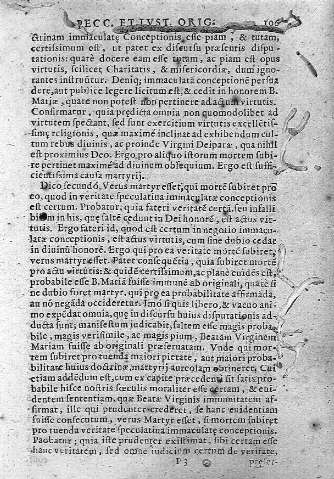 PECC. ET IUST. ORIG. 106
ctrinam immaculatæ Conceptionis, esse piam, & tutam,
certissimum est, ut patet ex discursu præsentis dispu-
tationis: quare docere eam esse talem, ac piam est opus
virtutis, scilicet Charitatis, & misericordiæ, dum igno-
rantes instruuntur. Deniq; immaculatā conceptionē persua
dere, aut publice legere licitum est, & cedit in honorem B.
Mariæ, quare non potest non pertinere ad aliquā virtutis.
Confirmatur, quia prædicta omnia non quomodolibet ad
virtutem spectant, sed sunt exercitium virtutis excellētis-
simę religionis, quæ maxime inclinat ad exhibendum cul-
tum rebus divinis, ac proinde Virgini Deiparæ, qua nihil
est proximius Deo. Ergo pro aliquo istorum mortem subi-
re pertinet maxime ad divinum obsequium. Ergo est suffi-
cientissima causa martyrij.
Dico secundo, Verus martyr esset, qui mortē subiret pro
eo, quod in veritate speculativa immaculatæ conceptionis
est certum. Probatur, quia fateri veritatē certā, seu infalli
bilem in his, quæ saltē cedunt in Dei honorē, est actus vir-
tutis. Ergo fateri id, quod est certum in negotio immacu-
latæ conceptionis, est actus virtutis, cum sine dubio cedat
in divinū honorē. Ergo qui pro ea veritate mortē subiret,
verus martyr esset. Patet consequētia, quia subiret mortē
pro actu virtutis: & quidē certissimum, ac plane evidēs est,
probabile esse B. Mariā fuisse immunē ab originali, quare si
ne dubio foret martyr, qui pro ea probabilitate affirmada,
aut nō negāda occideretur. Imo si quis libero, & vacuo ani-
mo expēdat omnia, quæ in discursu huius disputationis ad-
ducta sunt; manifestum iudicabit, saltem esse magis proba-
bile, magis verisimile, ac magis pium, Beatam Virginem
Mariam fuisse ab originali præservatam. Unde qui mor-
tem subiret pro tuenda maiori pietate, aut maiori proba-
bilitate huius doctrinæ, martyrij aureolam obtineret. Cui
etiam addendum est, cum ex capite præcedenti sit satis pro-
babile hisce nostris sæculis moraliter esse certam, & evi-
dentem sententiam, quæ Beatæ Virginis immunitatem af-
firmat, ille qui prudenter crederet, se hanc evidentiam
fuisse consecutum, verus Martyr esset, si mortem subiret
pro tuenda veritate speculativa immaculatæ conceptionis.
Probatur; quia iste prudenter existimat, sibi certam esse
hanc veritatem, sed omne iudicium certum de veritate,
P 3